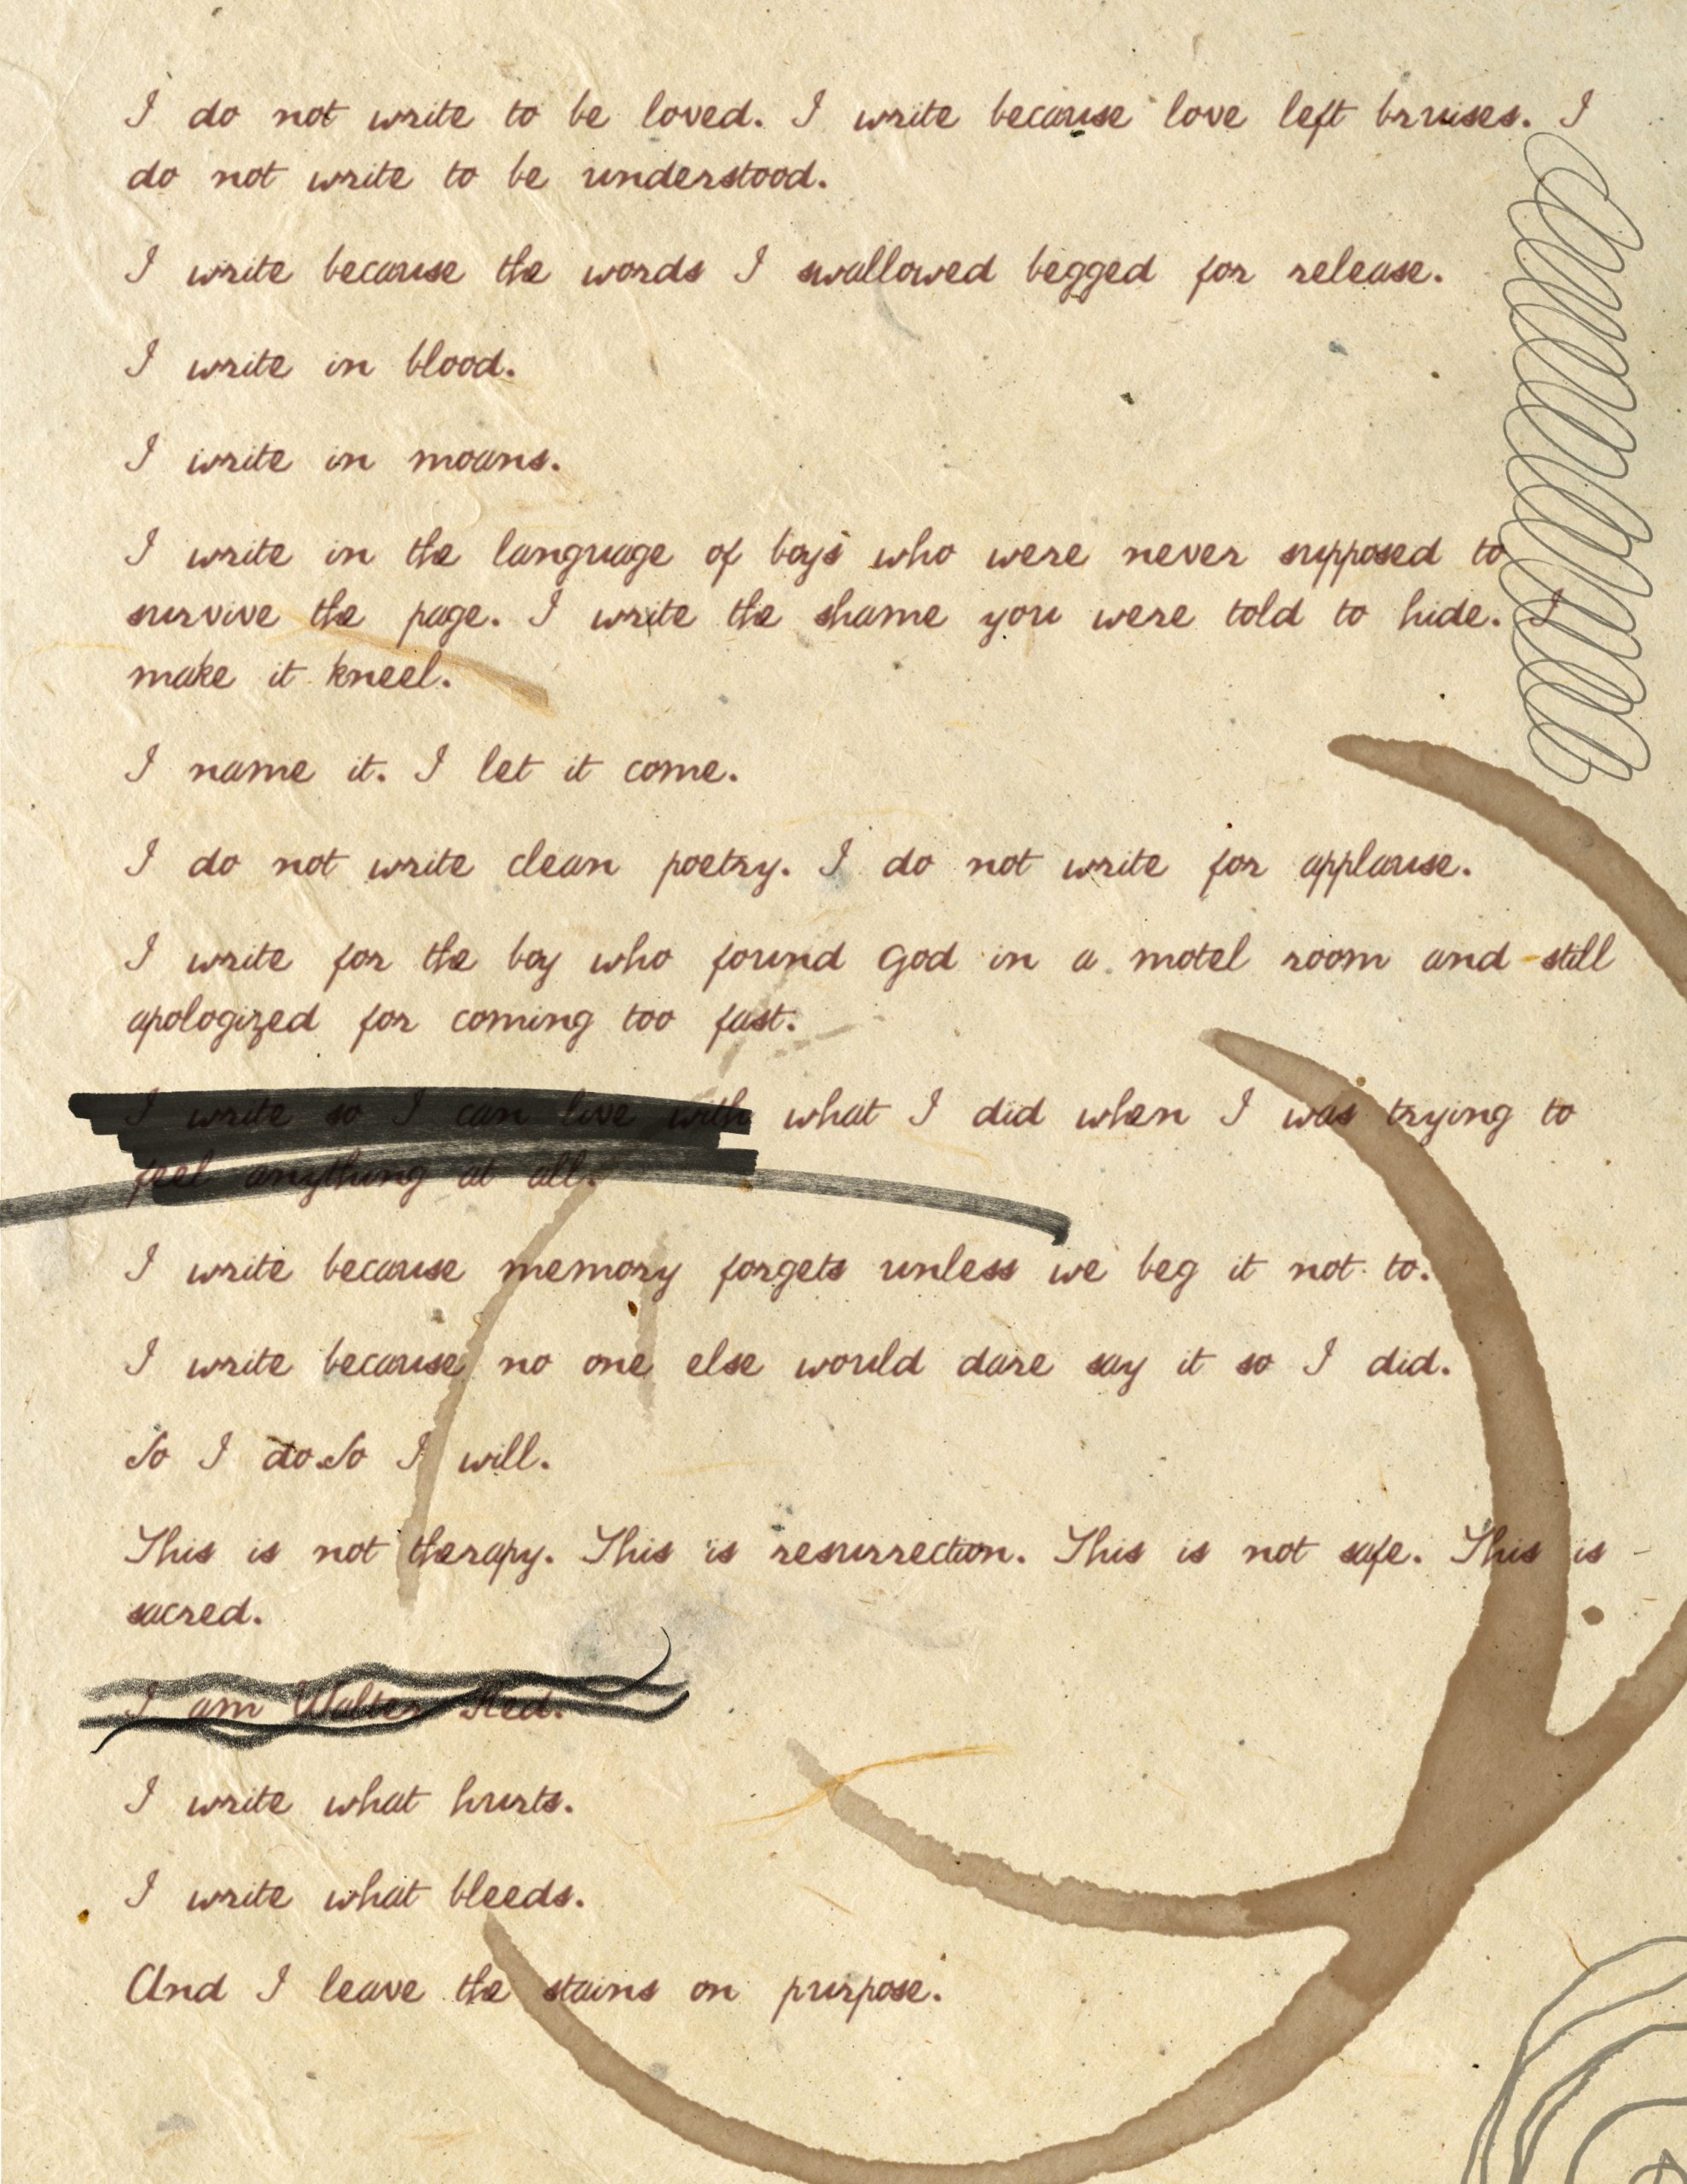 I do not write to be loved. I write because love left bruises. I
do not write to be understood.
I write because the words I swallowed begged for release.
I write in blood.
I write in moans.
I write in the language of boys who were never supposed to
survive the page. I write the shame you were told to hide. I
make it kneel.
I name it. I let it come.
I do not write clean poetry. I do not write for applause.
I write for the boy who found God in a motel room and still
apologized for coming too fast.
I write so I can live with what I did when I was trying to
feel anything at all.
I write because memory forgets unless we beg it not to.
I write because no one else would dare say it so I did.
So I do.So I will.
This is not therapy. This is resurrection. This is not safe. This is
sacred.
I am Walter Red.
I write what hurts.
I write what bleeds.
And I leave the stains on purpose.